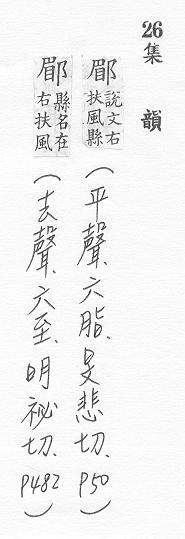 26集韻
郿 說文右扶風縣(平聲、六脂、旻悲切、P50)
郿 縣名在右扶風(去聲、六至、明祕切、P482)